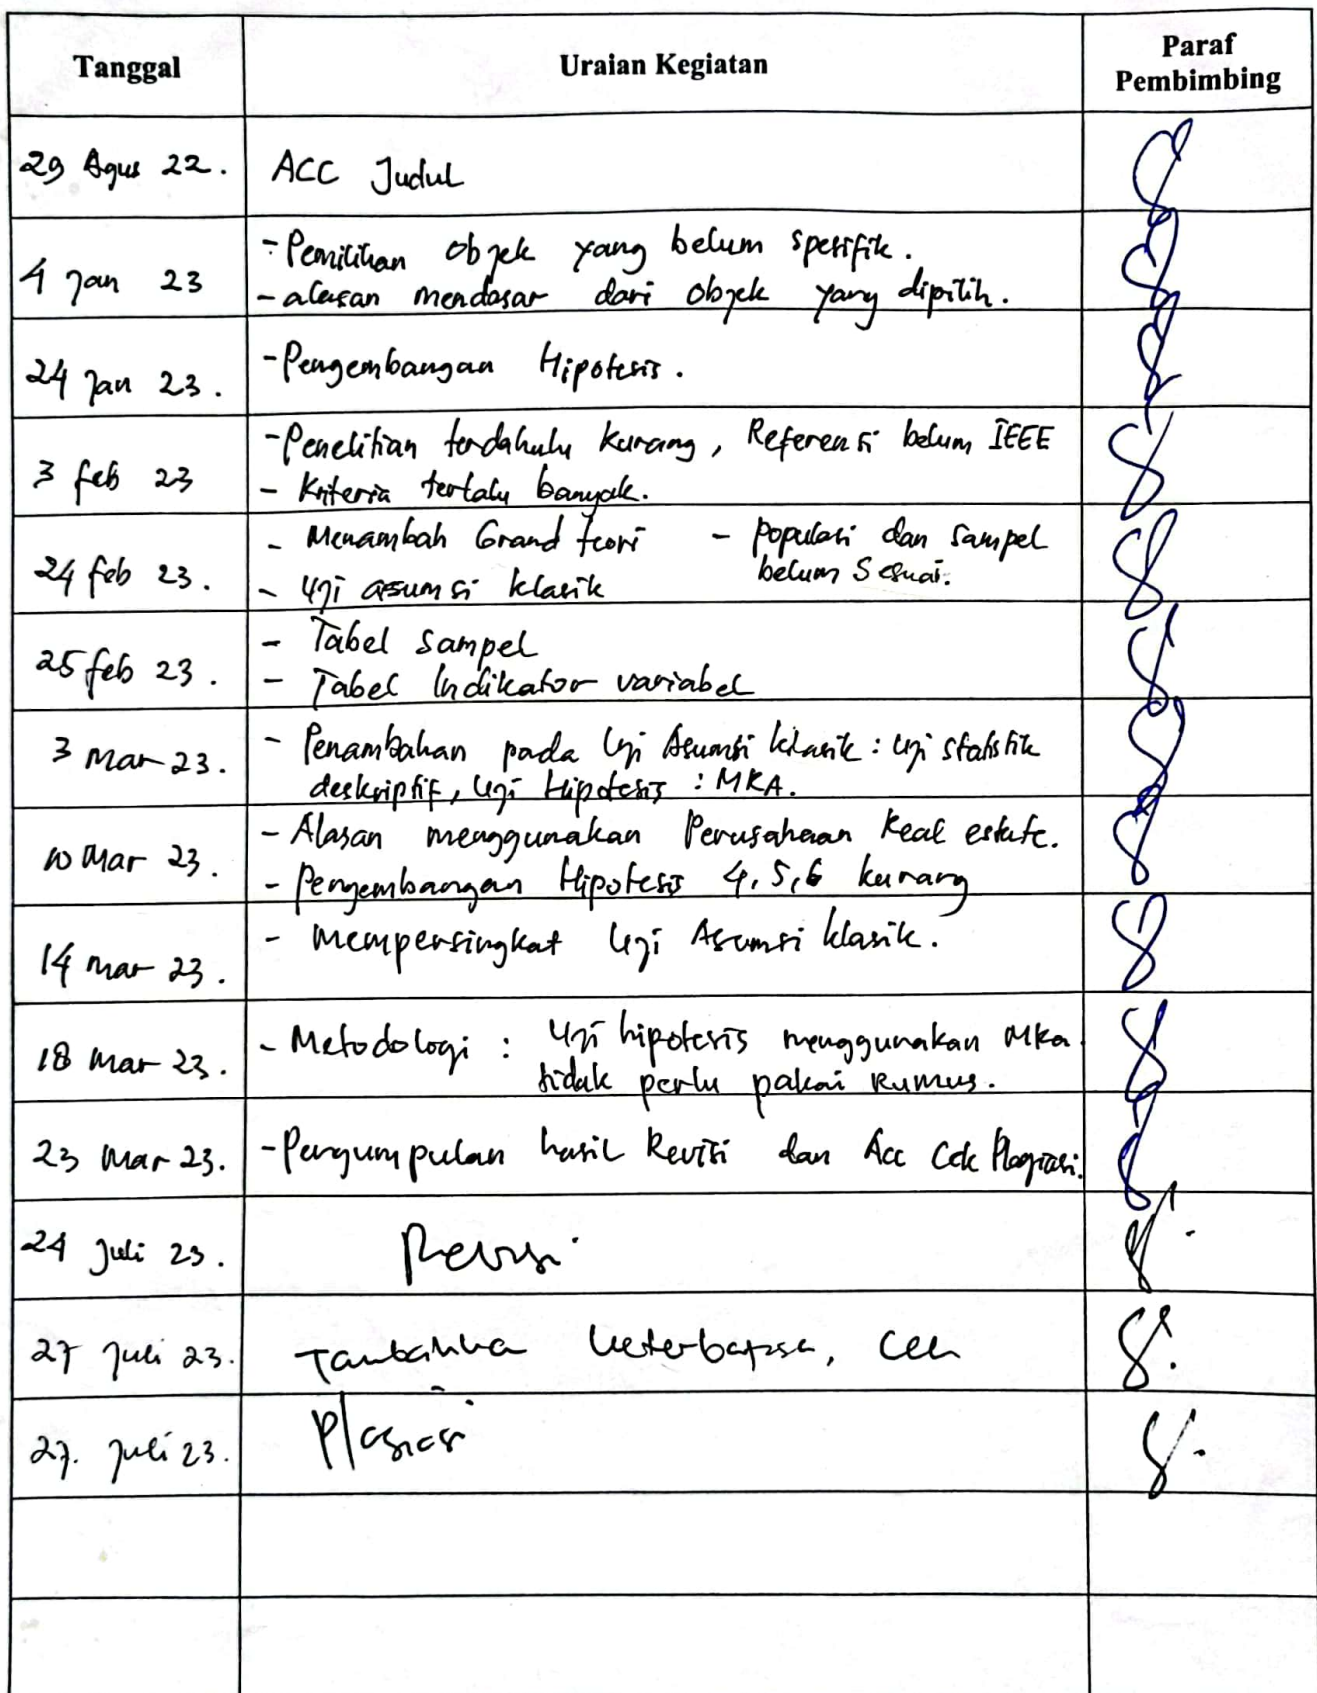 Tanggal Uraian Kegiatan Paraf Pembimbing
29 Agus 22. ACC Judul
4 Jan 23 - Pemilihan objek yang belum spesifik.
- alasan mendasar dari objek yang dipilih.
24 Jan 23. - Pengembangan Hipotesis.
3 feb 23 - Penelitian terdahulu kurang, Referensi belum IEEE
- Kriteria terlalu banyak.
24 feb 23. - Menambah Grand teori - populasi dan sampel belum sesuai.
- Uji asumsi klasik
25 feb 23. - Tabel Sampel
- Tabel Indikator variabel
3 Mar 23. - Penambahan pada Uji Asumsi klasik : uji statistik
deskriptif, Uji Hipotesis : MRA.
10 Mar 23. - Alasan menggunakan Perusahaan Real estate.
- Pengembangan Hipotesis 4, 5, 6 kurang
14 mar 23. - Mempersingkat Uji Asumsi klasik.
18 Mar 23. - Metodologi : Uji hipotesis menggunakan MRA
tidak perlu pakai Rumus.
23 Mar 23. - Pengumpulan hasil Revisi dan Acc Cek Plagiasi.
24 Juli 23. Revisi
27 Juli 23. cek
27. Juli 23. Plagiasi